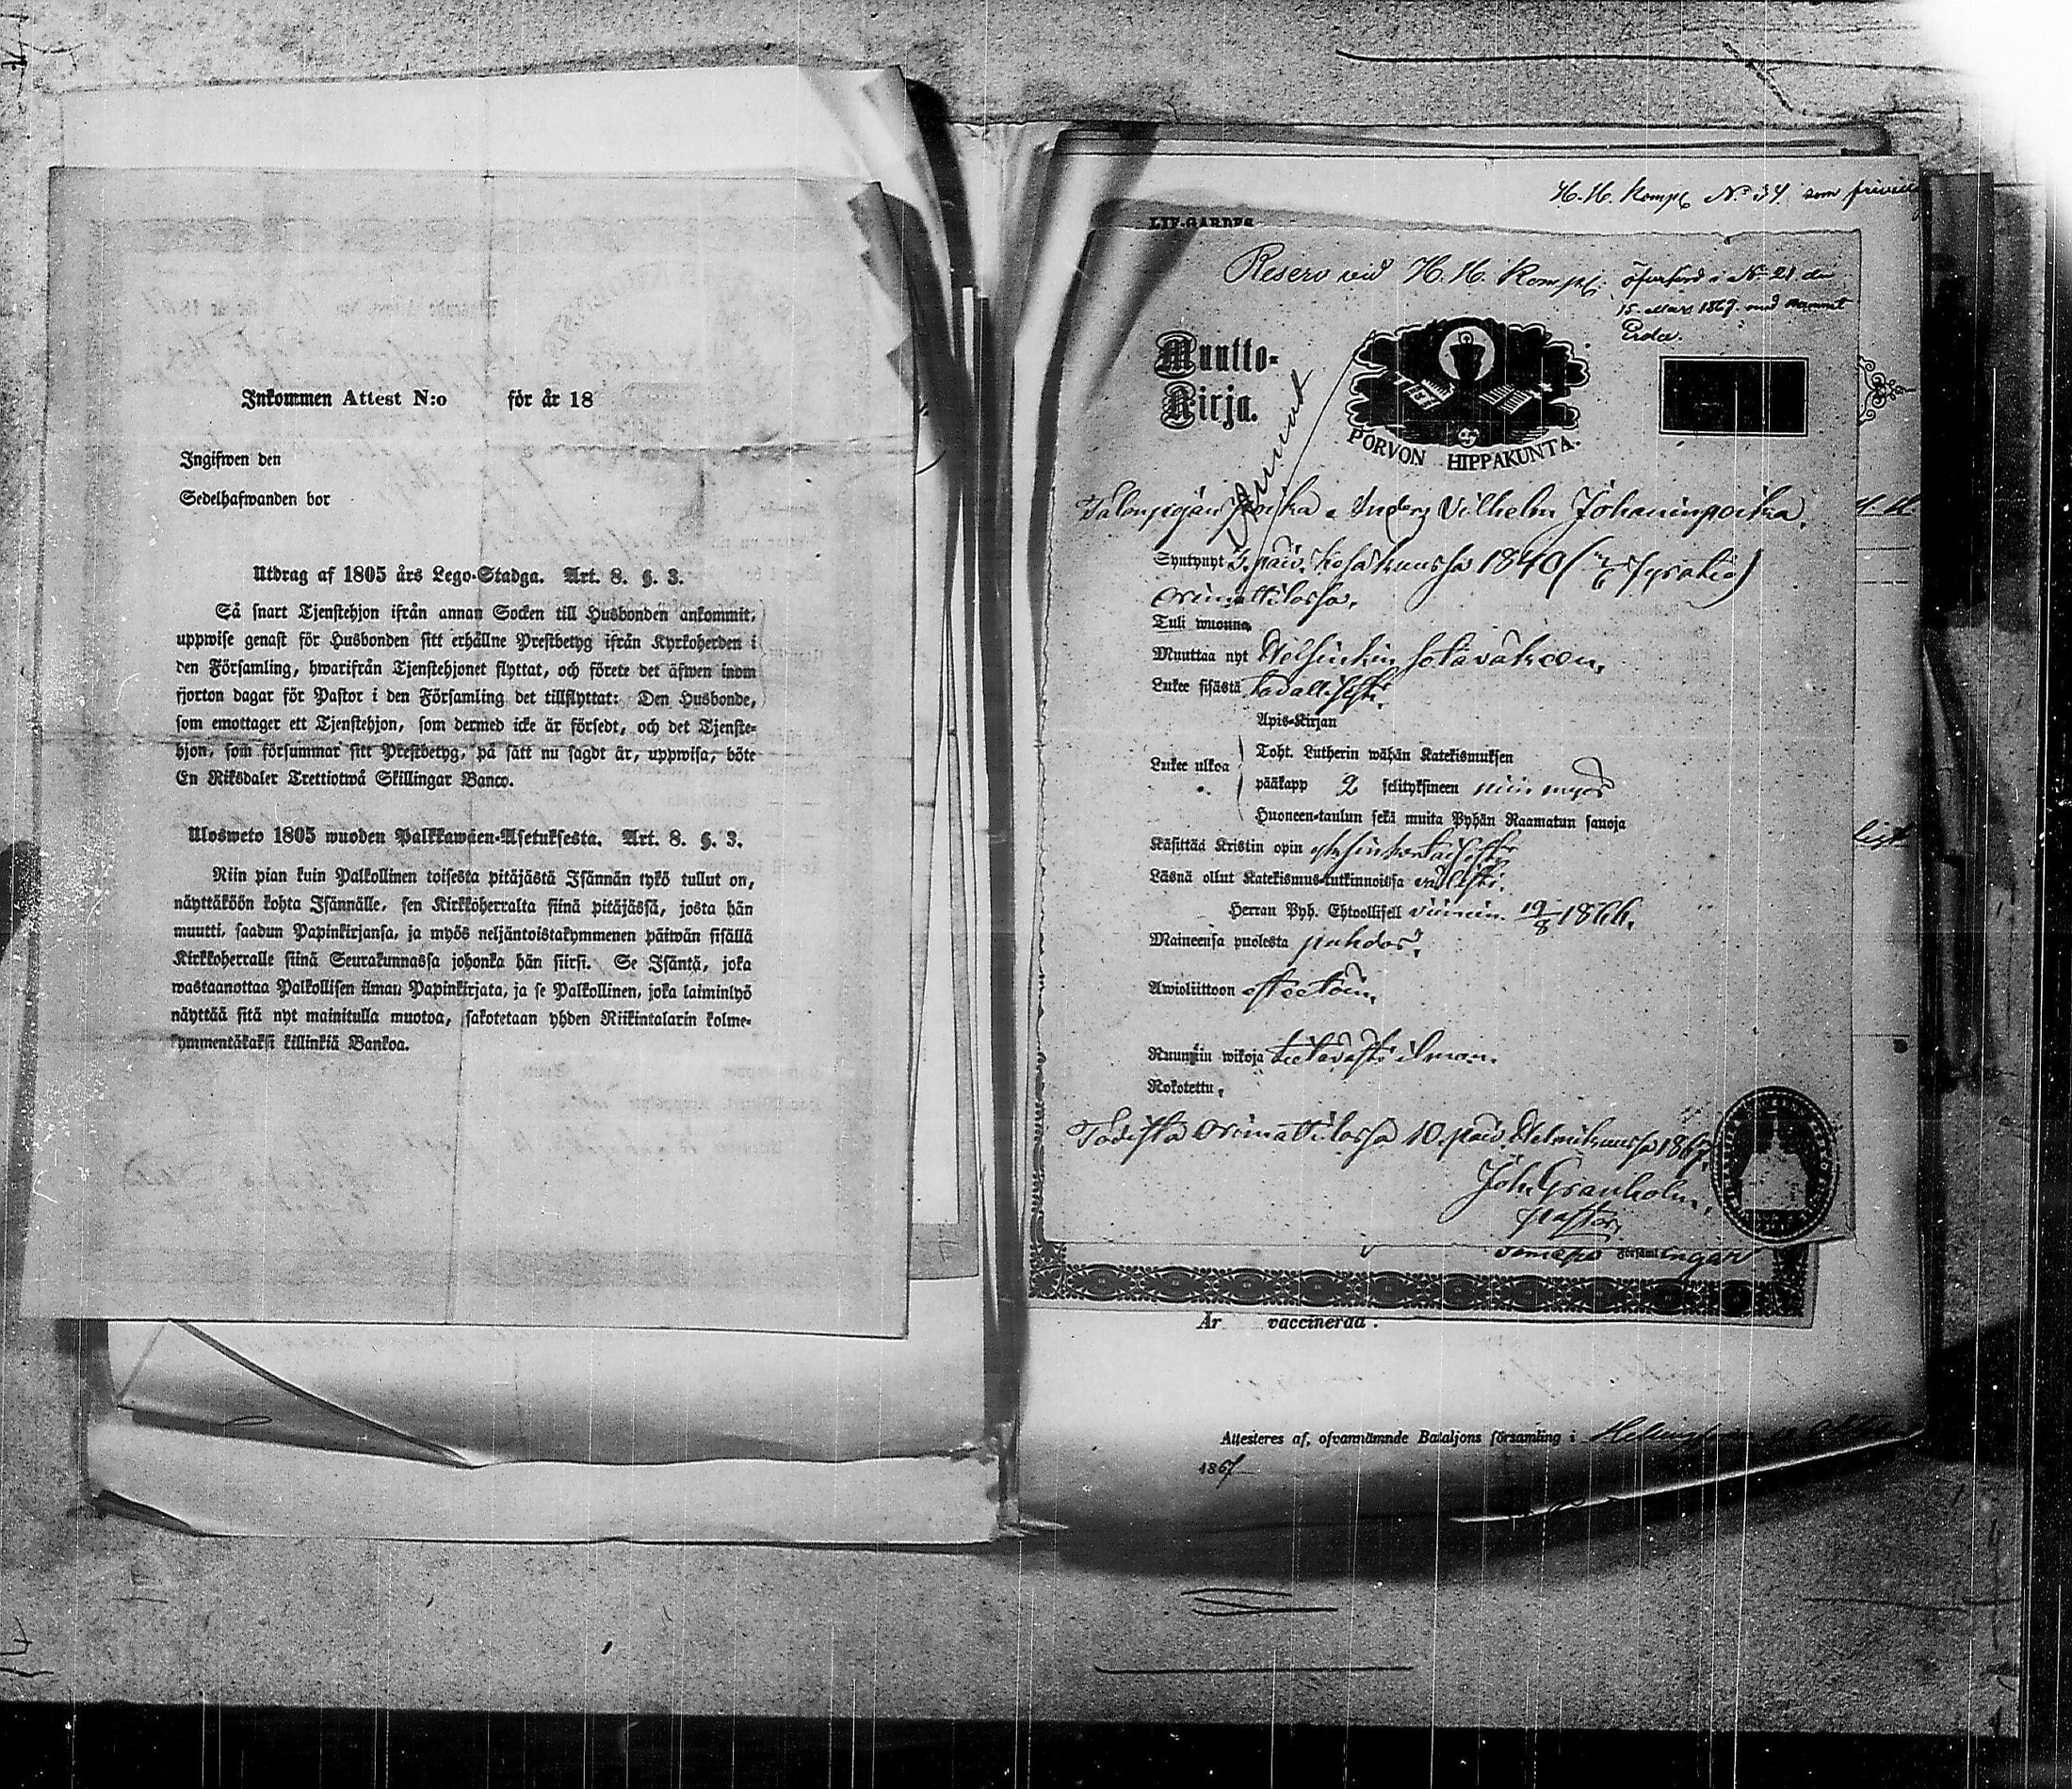 Inkommen Attest N:o för år 18
Ingifwen den
Sedelhafwanden bor
Utdrag af 1805 års Lego-Stadga. Art. 8. §. 3.
Så snart Tjenstehjon ifrån annan Socken till Husbonden ankommit,
uppwise genast för Husbonden sitt erhållne Prestbetyg ifrån Kyrkoherden i
den Församling, hwarifrån Tjenstehjonet flyttat, och förete det äfwen inom
fjorton dagar för Pastor i den Församling det tillflyttat: Den Husbonde,
som emottager ett Tjenstehjon, som dermed icke är försedt, och det Tjenste-
hjon, som försummar sitt Prestbetyg, på sätt nu sagdt är, uppwisa, böte
En Riksdaler Trettiotwå Skillingar Banco.
Ulosweto 1805 wuoden Palkkawäen-Asetuksesta. Art. 8. §. 3.
Niin pian kuin Palkollinen toisesta pitäjästä Isännän tykö tullut on,
näyttäköön kohta Isännälle, sen Kirkkoherralta siinä pitäjässä, josta hän
muutti, saadun Papinkirjansa, ja myös neljäntoistakymmenen päiwän sisällä
Kirkkoherralle siinä Seurakunnassa johonka hän siirsi. Se Isäntä, joka
wastaanottaa Palkollisen ilman Papinkirjata, ja se Palkollinen, joka laiminlyö
näyttää sitä nyt mainitulla muotoa, sakotetaan yhden Riikintalarin kolme-
kymmentäkaksi killinkiä Bankoa.
H. H. Komp N:o 34 som
LIF-GARDES
Reserv vid H. H. Komp: öfverförd i N:o 21 den
15 Mars 1867 med namnet
Muutto-
Kirja.
PORVON HIPPAKUNTA.
Talonpojan poika Vilhelm Johaninpoika.
Syntynyt 5. päiv. Kesäkuussa 1840
Orimattilassa.
Tuli wuonna
Muuttaa nyt Helsinkin sotaväkeen.
Lukee sisästä tavallisesti.
Apis-Kirjan
Lukee ulkoa
Toht. Lutherin wähän Katekismuksen
pääkapp 2 selityksineen niin myös
Huoneen-taulun sekä muita Pyhän Raamatun sanoja
Käsittää Kristin opin yksinkertaisesti
Läsnä ollut Katekismus-tutkinnoissa
Herran Pyh. Ehtoollisell viimein 19/8 1866.
Maineensa puolesta puhdas.
Awioliittoon esteetöin.
Ruumiin wikoja tietävästi ilman.
Rokotettu.
Todistaa Orimattilassa 10. päiv. Helmikuussa 1867.
Joh. Granholm,
pastor,
församlingar
Är vaccinerad.
Attesteres af, ofvannämnde Bataljons församling i Helsingfors
1867